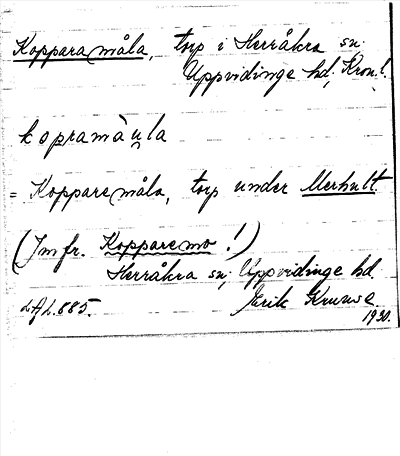 Kopparamåla, torp i Herråkra sn;
Uppvidinge hd, Kron. l.
kopramàu̯la
= Kopparemåla, torp under Merhult.
(Jmfr. Kopparemo!)
Herråkra sn; Uppvidinge hd.
LAL.885. Erik Kruuse
1930.